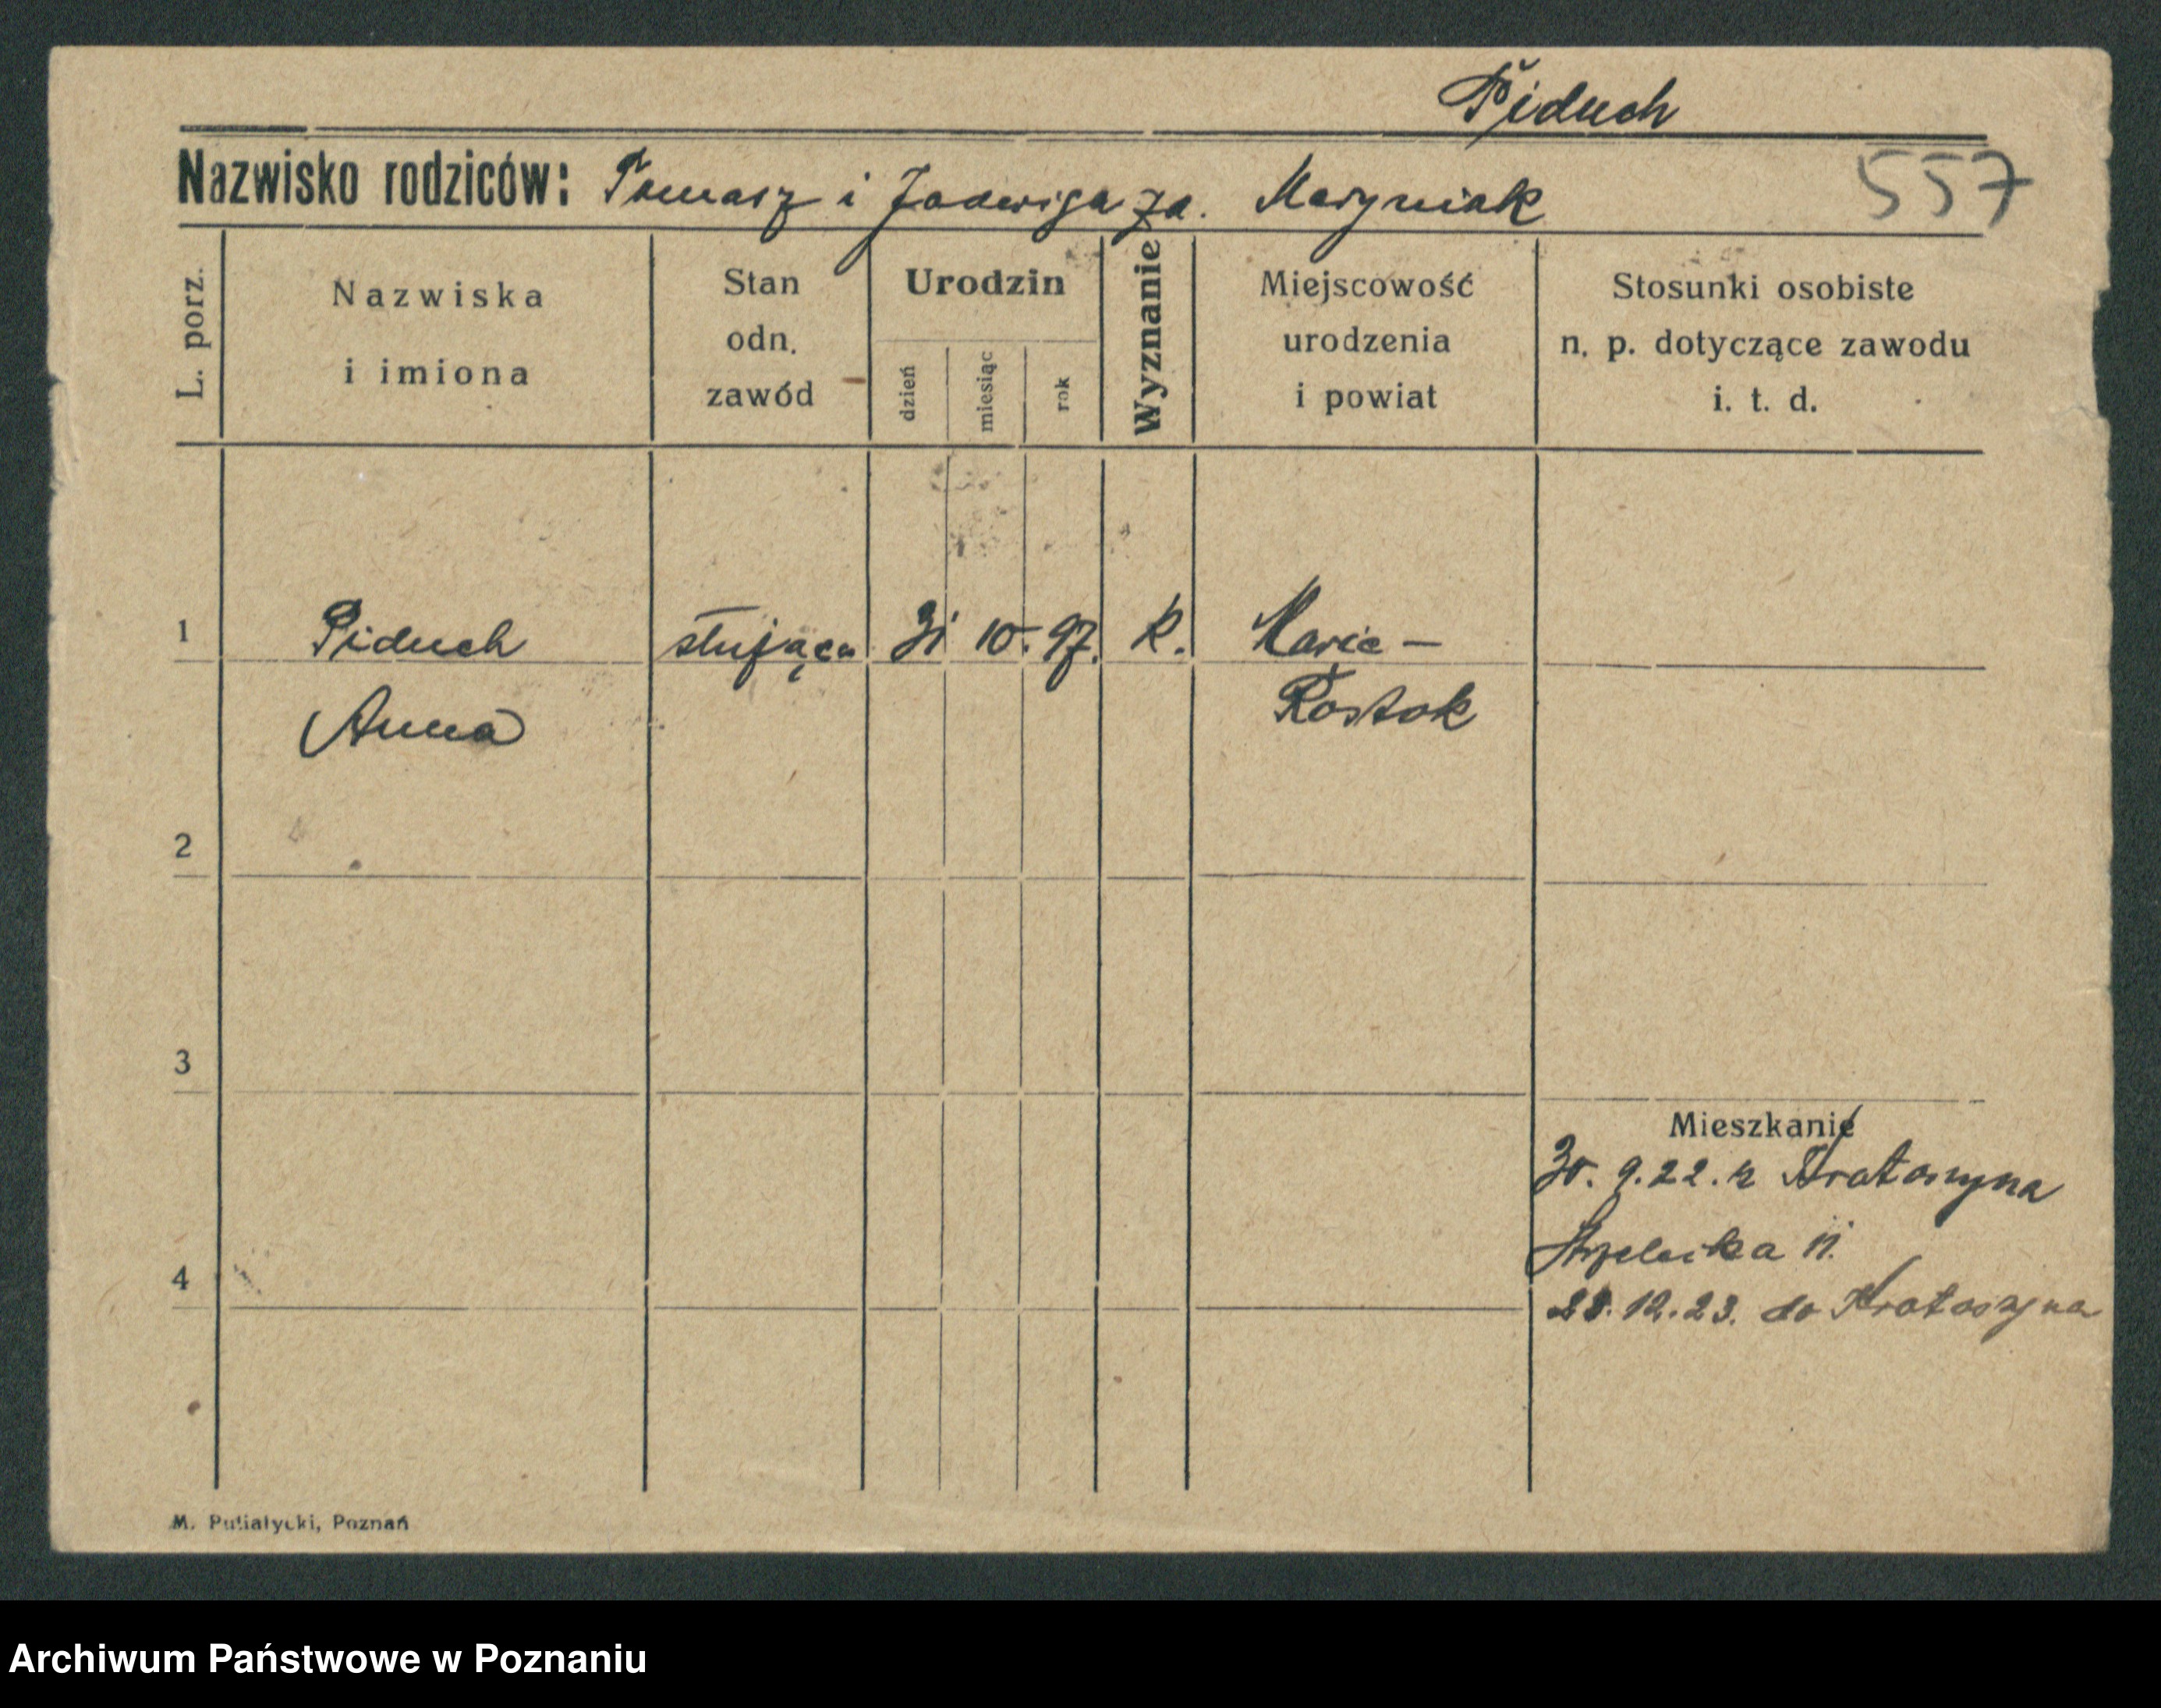 Piduch
Nazwisko rodziców: Tomasz i Jadwiga za. Maryniak
557
L. porz.
Nazwiska
i imiona
Stan
odn.
zawód
Urodzin
dzień
miesiąc
rok
Wyznanie
Miejscowość
urodzenia
i powiat
Stosunki osobiste
n. p. dotyczące zawodu
i. t. d.
1
Piduch
służąca
31 10. 97.
K.
Marie-
Anna
Rostok
2
3
4
Mieszkanie
30. 9.22. z Krotoszyna
Strzelecka 11.
28.12.23. do Krotoszyna
M. Putiatycki, Poznań
Archiwum Państwowe w Poznaniu